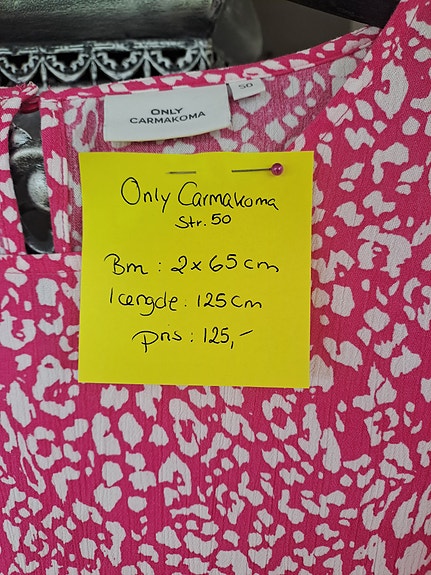 ONLY
CARMAKOMA
50
Only Carmakoma
Str. 50
Bm : 2 x 65 cm
længde : 125 cm
pris : 125,-